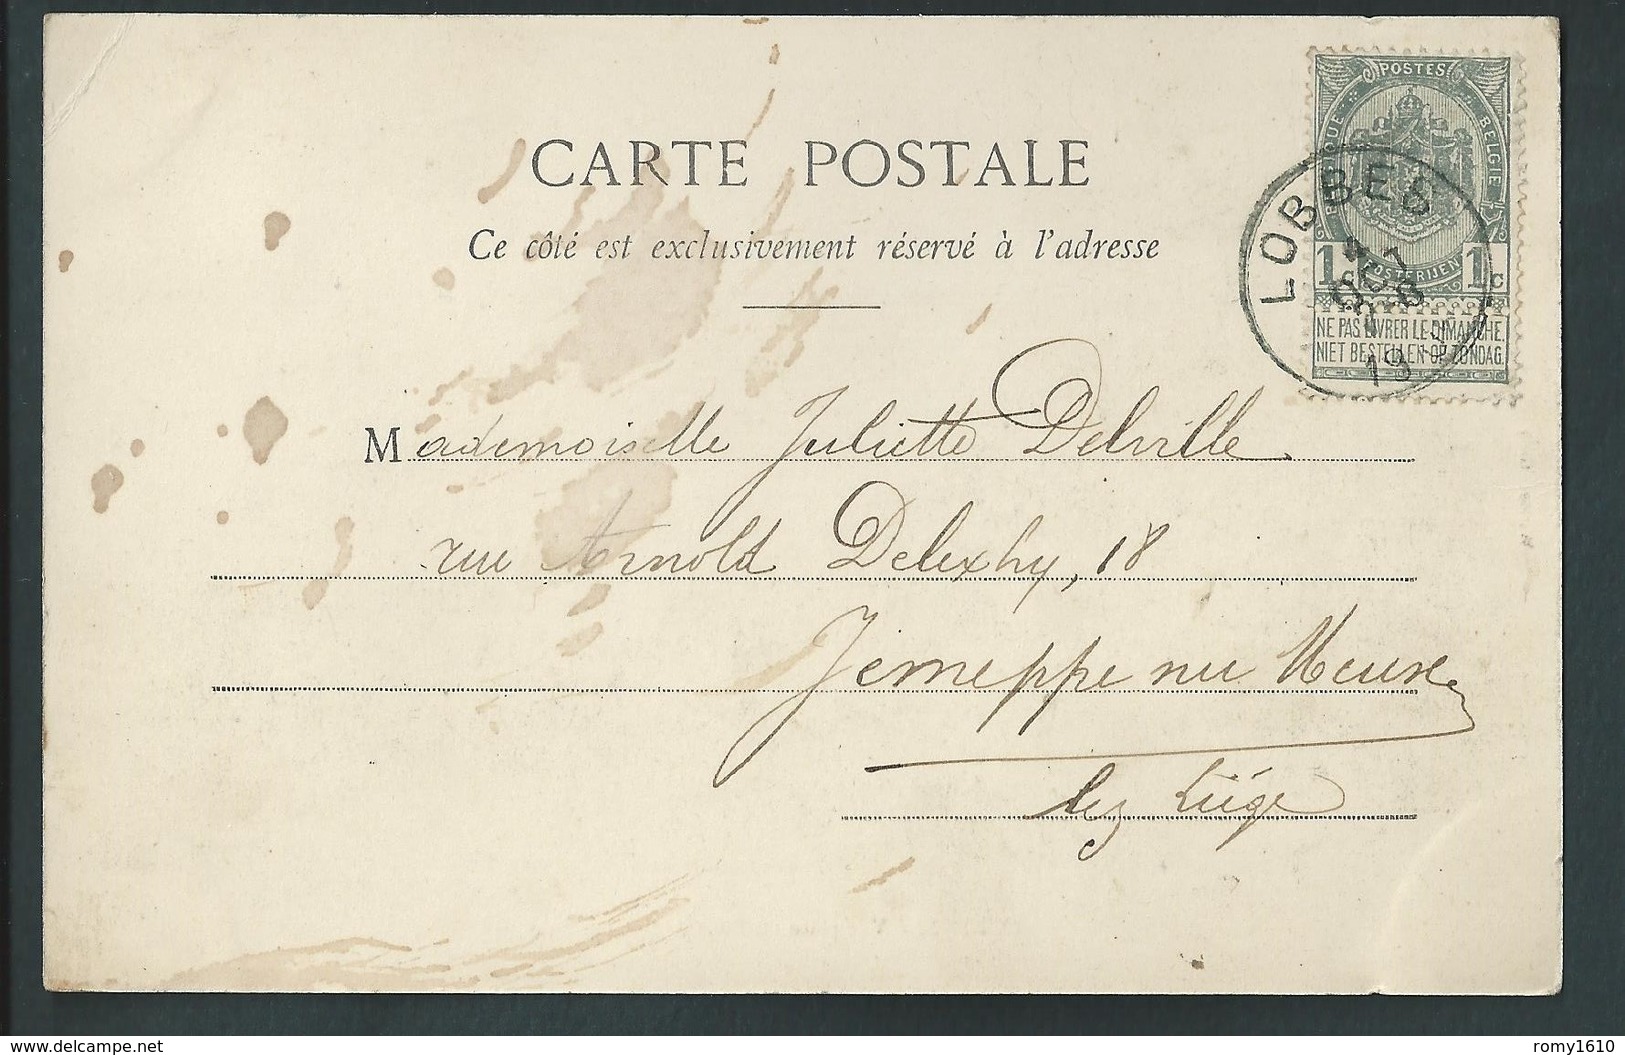 CARTE POSTALE
Ce côté est exclusivement réservé à l'adresse
POSTES
BELGIQUE
BELGIE
POSTERIJEN
1c 1c
NE PAS LIVRER LE DIMANCHE.
NIET BESTELLEN OP ZONDAG.
LOBBES
19
Mademoiselle Juliette Delville
rue Arnold Delexhy, 18
Jemeppe sur Meuse
lez Liége
delcampe.net
romy1610